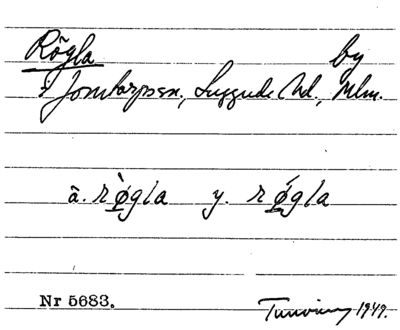 Rögla by
i Jonstorps sn., Luggude hd., Mlm.
ä. rø̀gla y. rǿgla
Nr 5683. 1949.